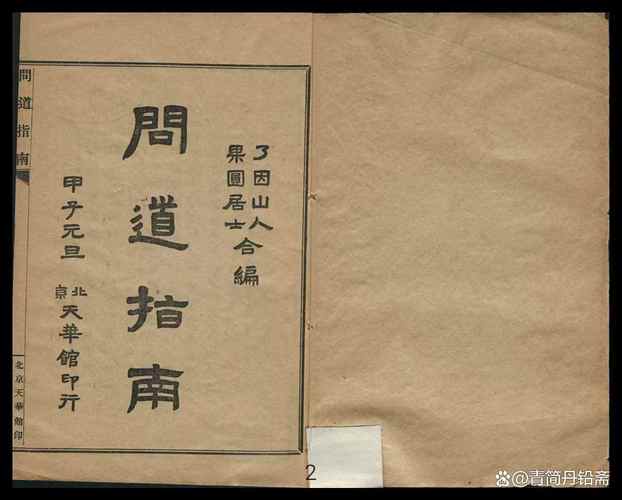 了因山人
果圓居士
合編
問道指南
甲子元旦
北京
天華館印行
問道指南
北京天華館印
2
@青简丹铅斋